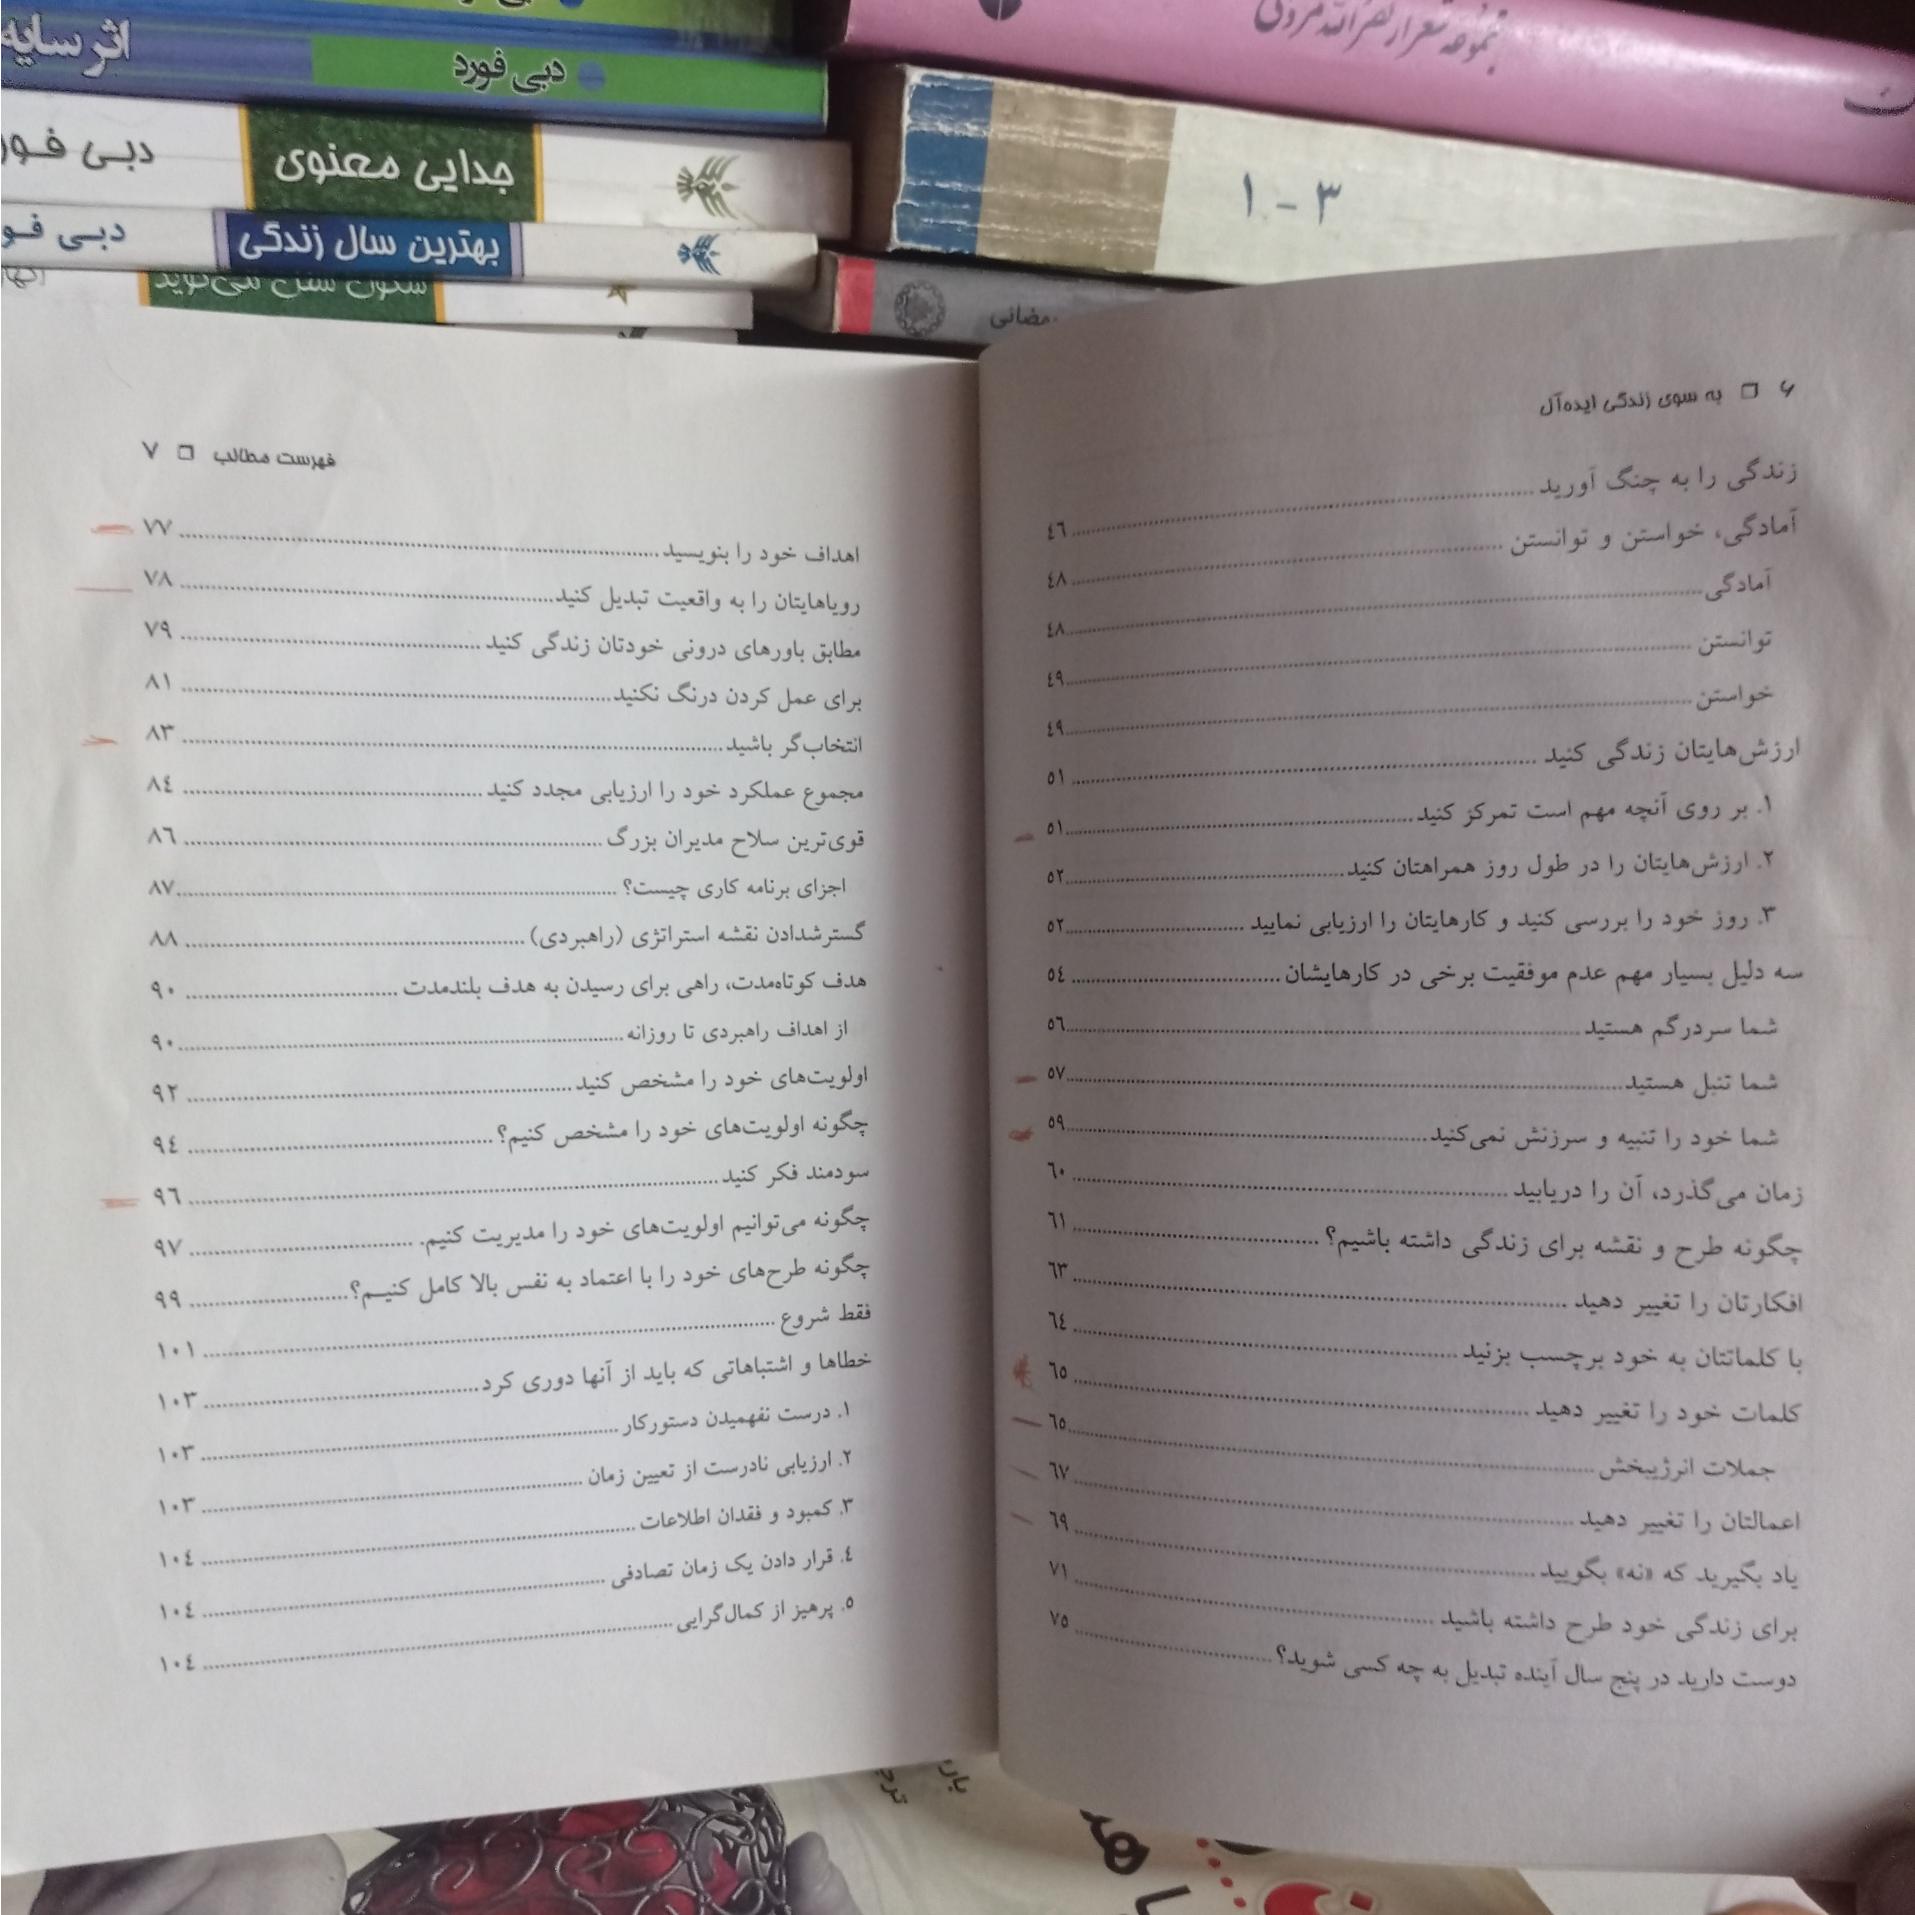 دبی فورد
اثر سایه
جدایی معنوی
دبی فور
بهترین سال زندگی
دبی فو
۱ - ۳
۶ □ به سوی زندگی ایده‌آل
زندگی را به چنگ آورید ۴۶
آمادگی، خواستن و توانستن ۴۸
آمادگی ۴۸
توانستن ۴۹
خواستن ۴۹
ارزش‌هایتان زندگی کنید ۵۱
۱. بر روی آنچه مهم است تمرکز کنید ۵۱
۲. ارزش‌هایتان را در طول روز همراهتان کنید ۵۲
۳. روز خود را بررسی کنید و کارهایتان را ارزیابی نمایید ۵۲
سه دلیل بسیار مهم عدم موفقیت برخی در کارهایشان ۵۴
شما سردرگم هستید ۵۶
شما تنبل هستید ۵۷
شما خود را تنبیه و سرزنش نمی‌کنید ۵۹
زمان می‌گذرد، آن را دریابید ۶۰
چگونه طرح و نقشه برای زندگی داشته باشیم؟ ۶۱
افکارتان را تغییر دهید ۶۳
با کلماتتان به خود برچسب بزنید ۶۴
کلمات خود را تغییر دهید ۶۵
جملات انرژیبخش ۶۵
اعمالتان را تغییر دهید ۶۷
یاد بگیرید که «نه» بگویید ۶۹
برای زندگی خود طرح داشته باشید ۷۱
دوست دارید در پنج سال آینده تبدیل به چه کسی شوید؟ ۷۵
فهرست مطالب □ ۷
اهداف خود را بنویسید ۷۷
رویاهایتان را به واقعیت تبدیل کنید ۷۸
مطابق باورهای درونی خودتان زندگی کنید ۷۹
برای عمل کردن درنگ نکنید ۸۱
انتخاب‌گر باشید ۸۳
مجموع عملکرد خود را ارزیابی مجدد کنید ۸۴
قوی‌ترین سلاح مدیران بزرگ ۸۶
اجزای برنامه کاری چیست؟ ۸۷
گسترشدادن نقشه استراتژی (راهبردی) ۸۸
هدف کوتاه‌مدت، راهی برای رسیدن به هدف بلندمدت ۹۰
از اهداف راهبردی تا روزانه ۹۰
اولویت‌های خود را مشخص کنید ۹۲
چگونه اولویت‌های خود را مشخص کنیم؟ ۹۴
سودمند فکر کنید ۹۶
چگونه می‌توانیم اولویت‌های خود را مدیریت کنیم. ۹۷
چگونه طرح‌های خود را با اعتماد به نفس بالا کامل کنیـم؟ ۹۹
فقط شروع ۱۰۱
خطاها و اشتباهاتی که باید از آنها دوری کرد ۱۰۳
۱. درست نفهمیدن دستورکار ۱۰۳
۲. ارزیابی نادرست از تعیین زمان ۱۰۳
۳. کمبود و فقدان اطلاعات ۱۰۴
۴. قرار دادن یک زمان تصادفی ۱۰۴
۵. پرهیز از کمال‌گرایی ۱۰۴